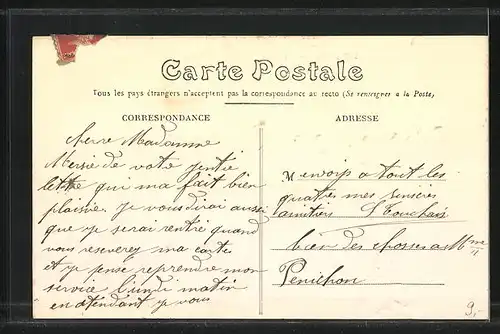 Carte Postale
Tous les pays étrangers n'acceptent pas la correspondance au recto (Se renseigner a la Poste)
CORRESPONDANCE
ADRESSE
Madamme
Mersie de votre jentie
lettre qui ma fait bien
plaisire. Je vous dirai aussi
que je serai rentré quand
vous reseverez ma carte
et je pense reprendre mon
service l'undi matin
en atendant je vous
M envois a tout les
quatres mes sinseres
amitiers
bien des chosses a Mme
Penichon
9,-